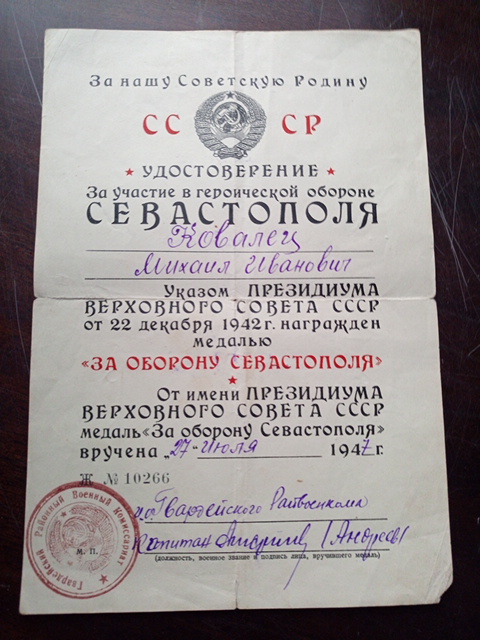 За нашу Советскую Родину
СС СР
УДОСТОВЕРЕНИЕ
За участие в героической обороне
СЕВАСТОПОЛЯ
Ковалец
Михаил Иванович
Указом ПРЕЗИДИУМА
ВЕРХОВНОГО СОВЕТА СССР
от 22 декабря 1942 г. награжден
медалью
«ЗА ОБОРОНУ СЕВАСТОПОЛЯ»
От имени ПРЕЗИДИУМА
ВЕРХОВНОГО СОВЕТА СССР
медаль «За оборону Севастополя»
вручена „27" июля 1947 г.
Ж № 10266
Гвардейского Райвоенкома
Капитан (Андреев)
М. П.
(должность, военное звание и подпись лица, вручившего медаль)
Гвардейский Районный Военный Комиссариат